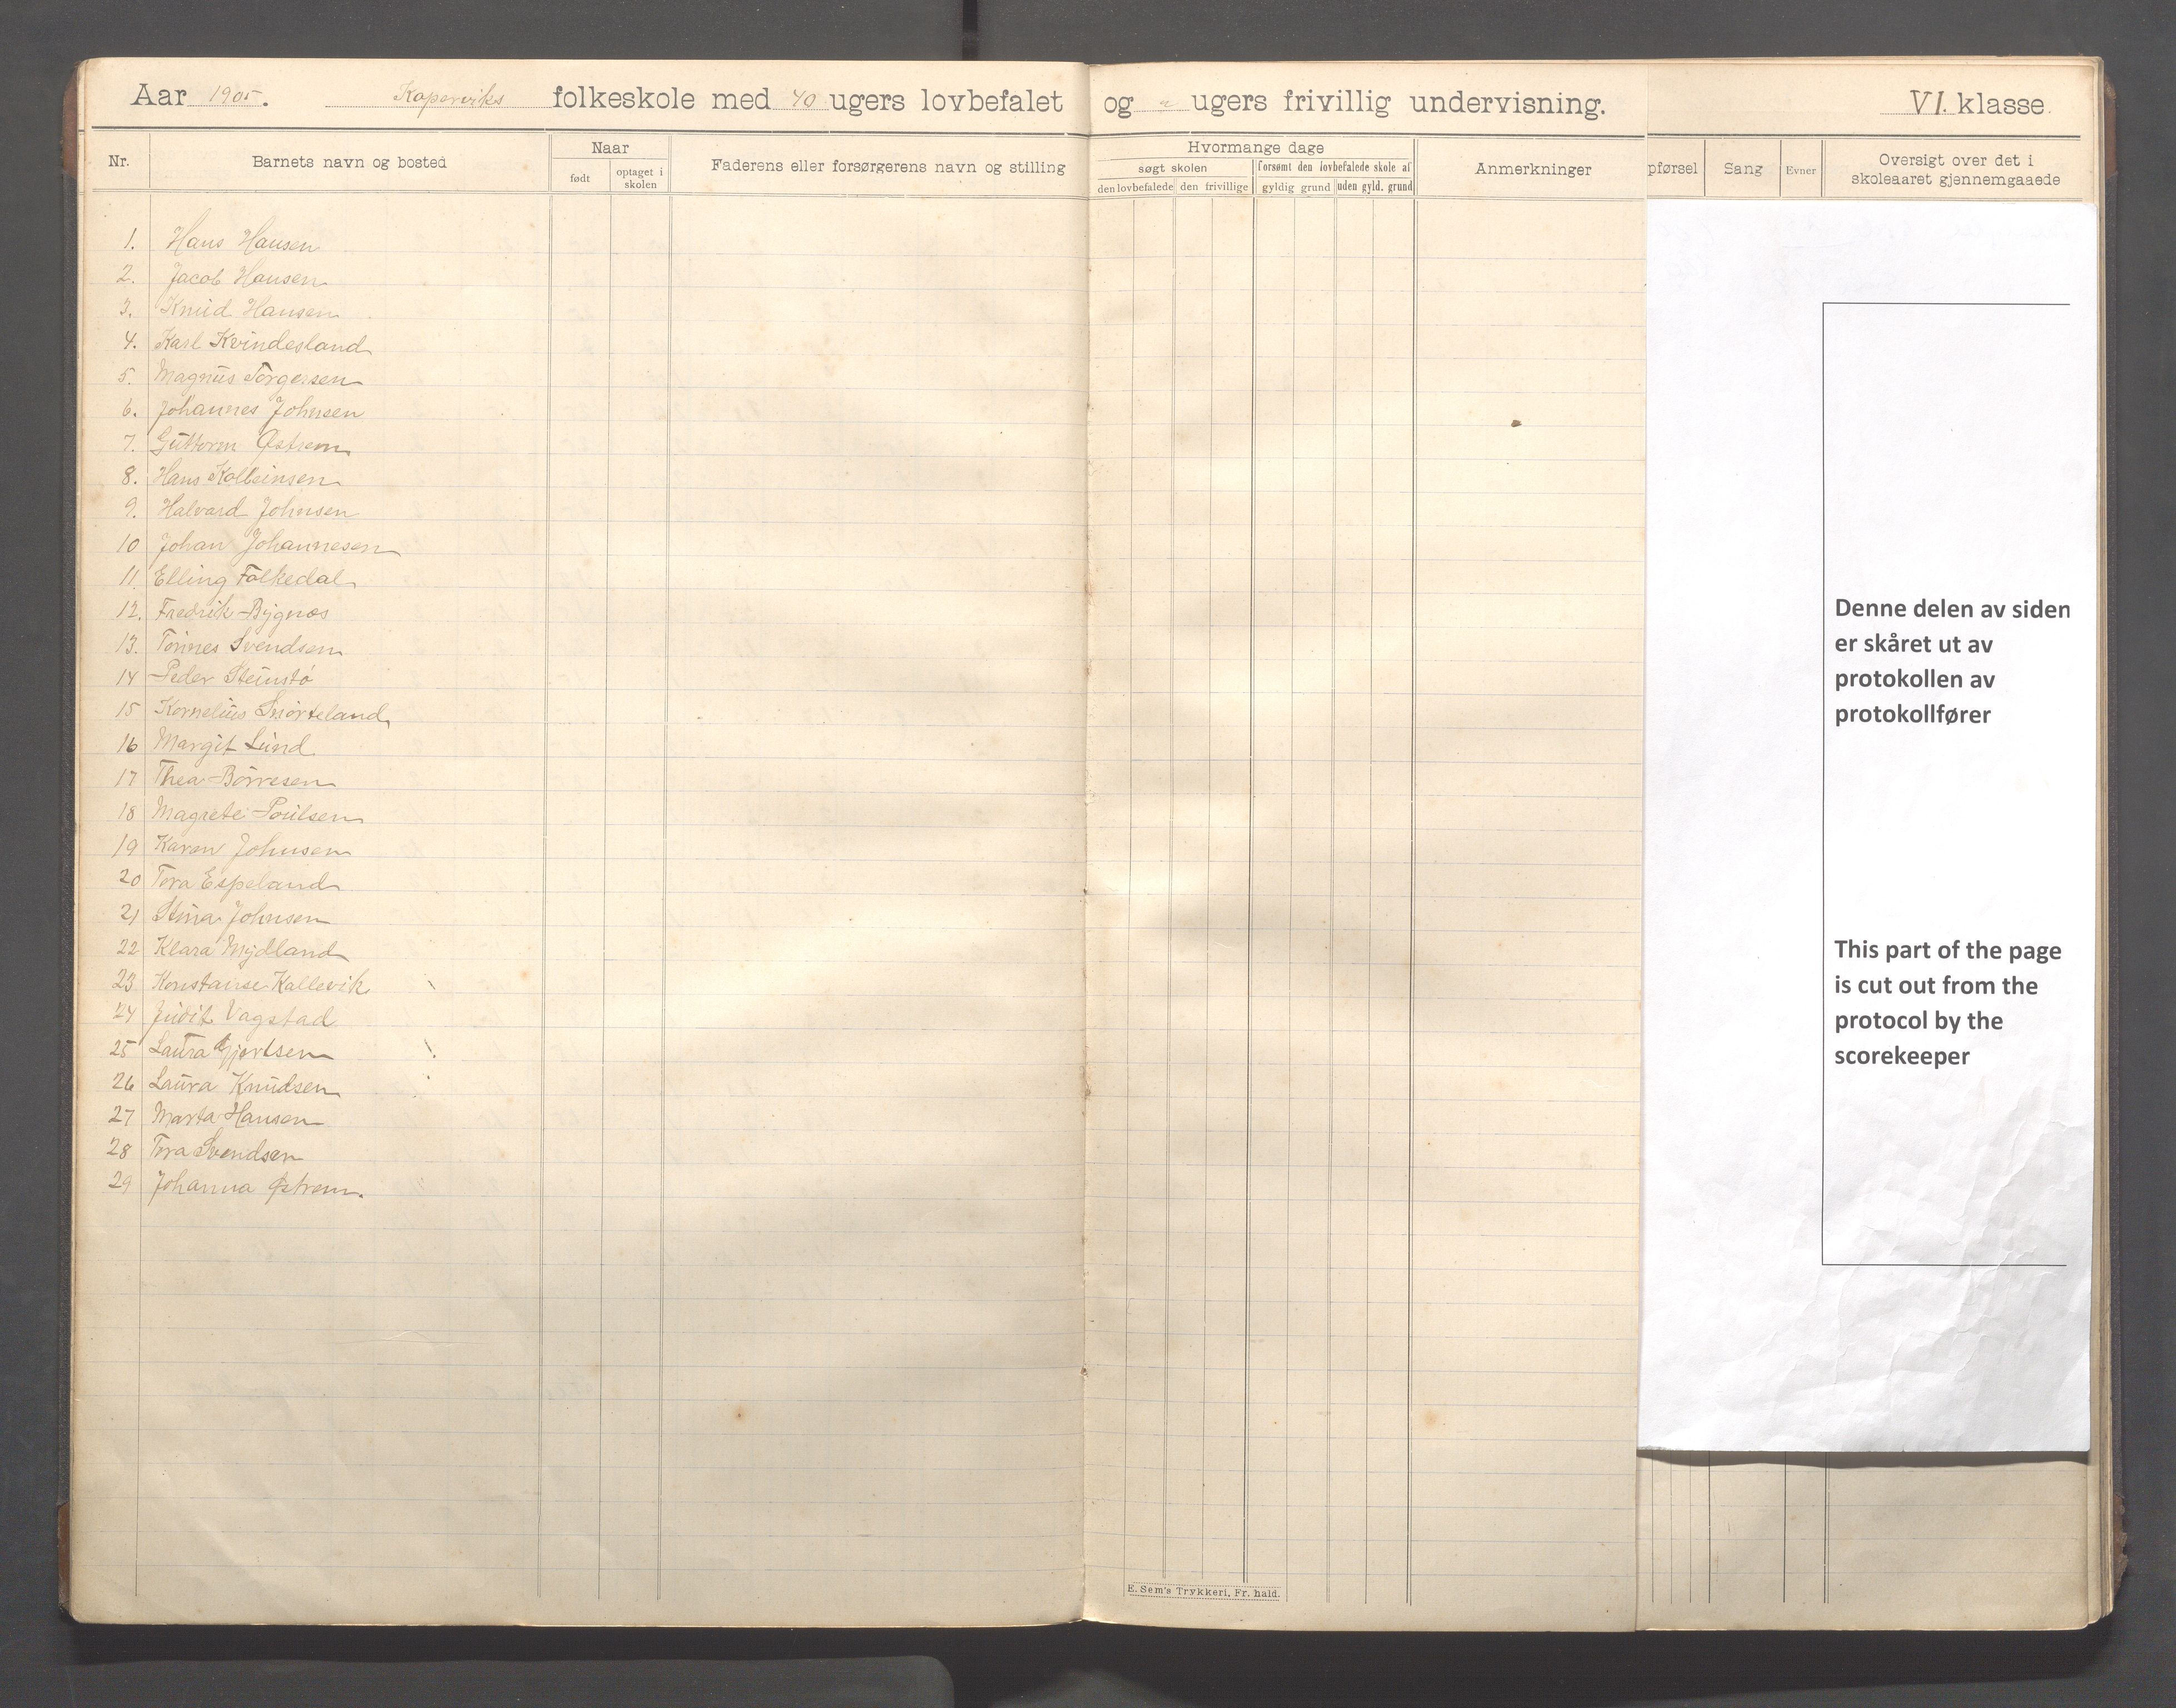 Aar 1905. Kopervviks folkeskole med 40 ugers lovbefalet og ugers frivillig undervisning. VI. klasse.
Nr. Barnets navn og bosted Naar født optaget i skolen Faderens eller forsørgerens navn og stilling Hvormange dage søgt skolen den lovbefalede den frivillige forsømt den lovbefalede skole af gyldig grund uden gyld. grund Anmerkninger pførsel Sang Evner Oversigt over det i skoleaaret gjennemgaaede
1. Hans Hansen
2. Jacob Hansen
3. Knud Hansen
4. Karl Kvindesland
5. Magnus Torgersen
6. Johannes Johnsen
7. Guttorm Østrem
8. Hans Kolbeinsen
9. Halvard Johnsen
10 Johan Johannesen
11 Elling Folkedal
12. Fredrik Bygnes
13. Tønnes Svendsen
14 Peder Steinstø
15 Kornelius Snørteland
16 Margit Lund
17 Thea Børresen
18 Magrete Poulsen
19 Karen Johnsen
20 Tora Espeland
21 Stina Johnsen
22 Klara Mydland
23 Konstanse Kallevik
24 Judit Vagstad
25 Laura Gjertsen
26 Laura Knudsen
27 Marta Hansen
28 Tora Svendsen
29 Johanna Østrem.
Denne delen av siden
er skåret ut av
protokollen av
protokollfører
This part of the page
is cut out from the
protocol by the
scorekeeper
E. Sem's Trykkeri, Fr. hald.